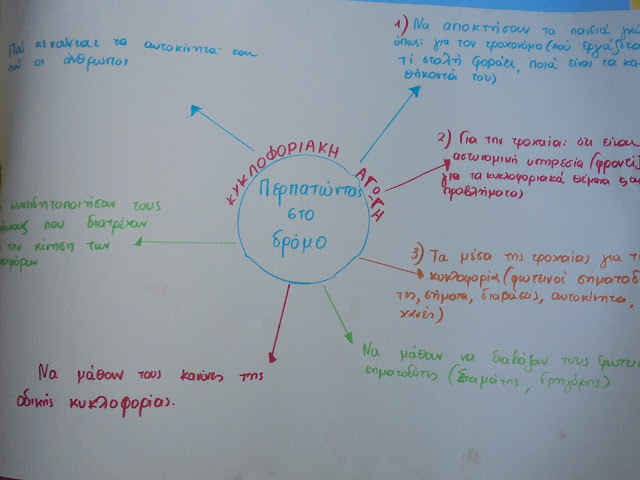 ΚΥΚΛΟΦΟΡΙΑΚΗ ΑΓΩΓΗ
Περπατώντας
στο
δρόμο
1) Να αποκτήσουν τα παιδιά
όπως: για τον τροχονόμο (πού
τί στολή φοράει, ποιά είναι τα κα-
θήκοντά του)
2) Για την τροχαία: ότι είναι
αστυνομική υπηρεσία
για τα κυκλοφοριακά θέματα
προβλήματα)
3) Τα μέσα της τροχαίας για
κυκλοφορία (φωτεινοί σηματοδ
τες, σήματα, διαβάσεις, αυτοκίνητα,
χανές)
Να μάθουν να διαβάζουν τους φωτει
σηματοδότες (Σταμάτης, Γρηγόρης)
Να μάθουν τους κανόνες της
οδικής κυκλοφορίας.
συνειδητοποιήσουν τους
που διατρέχουν
την κίνηση των
Πού κινούνται τα αυτοκίνητα και
πού οι άνθρωποι